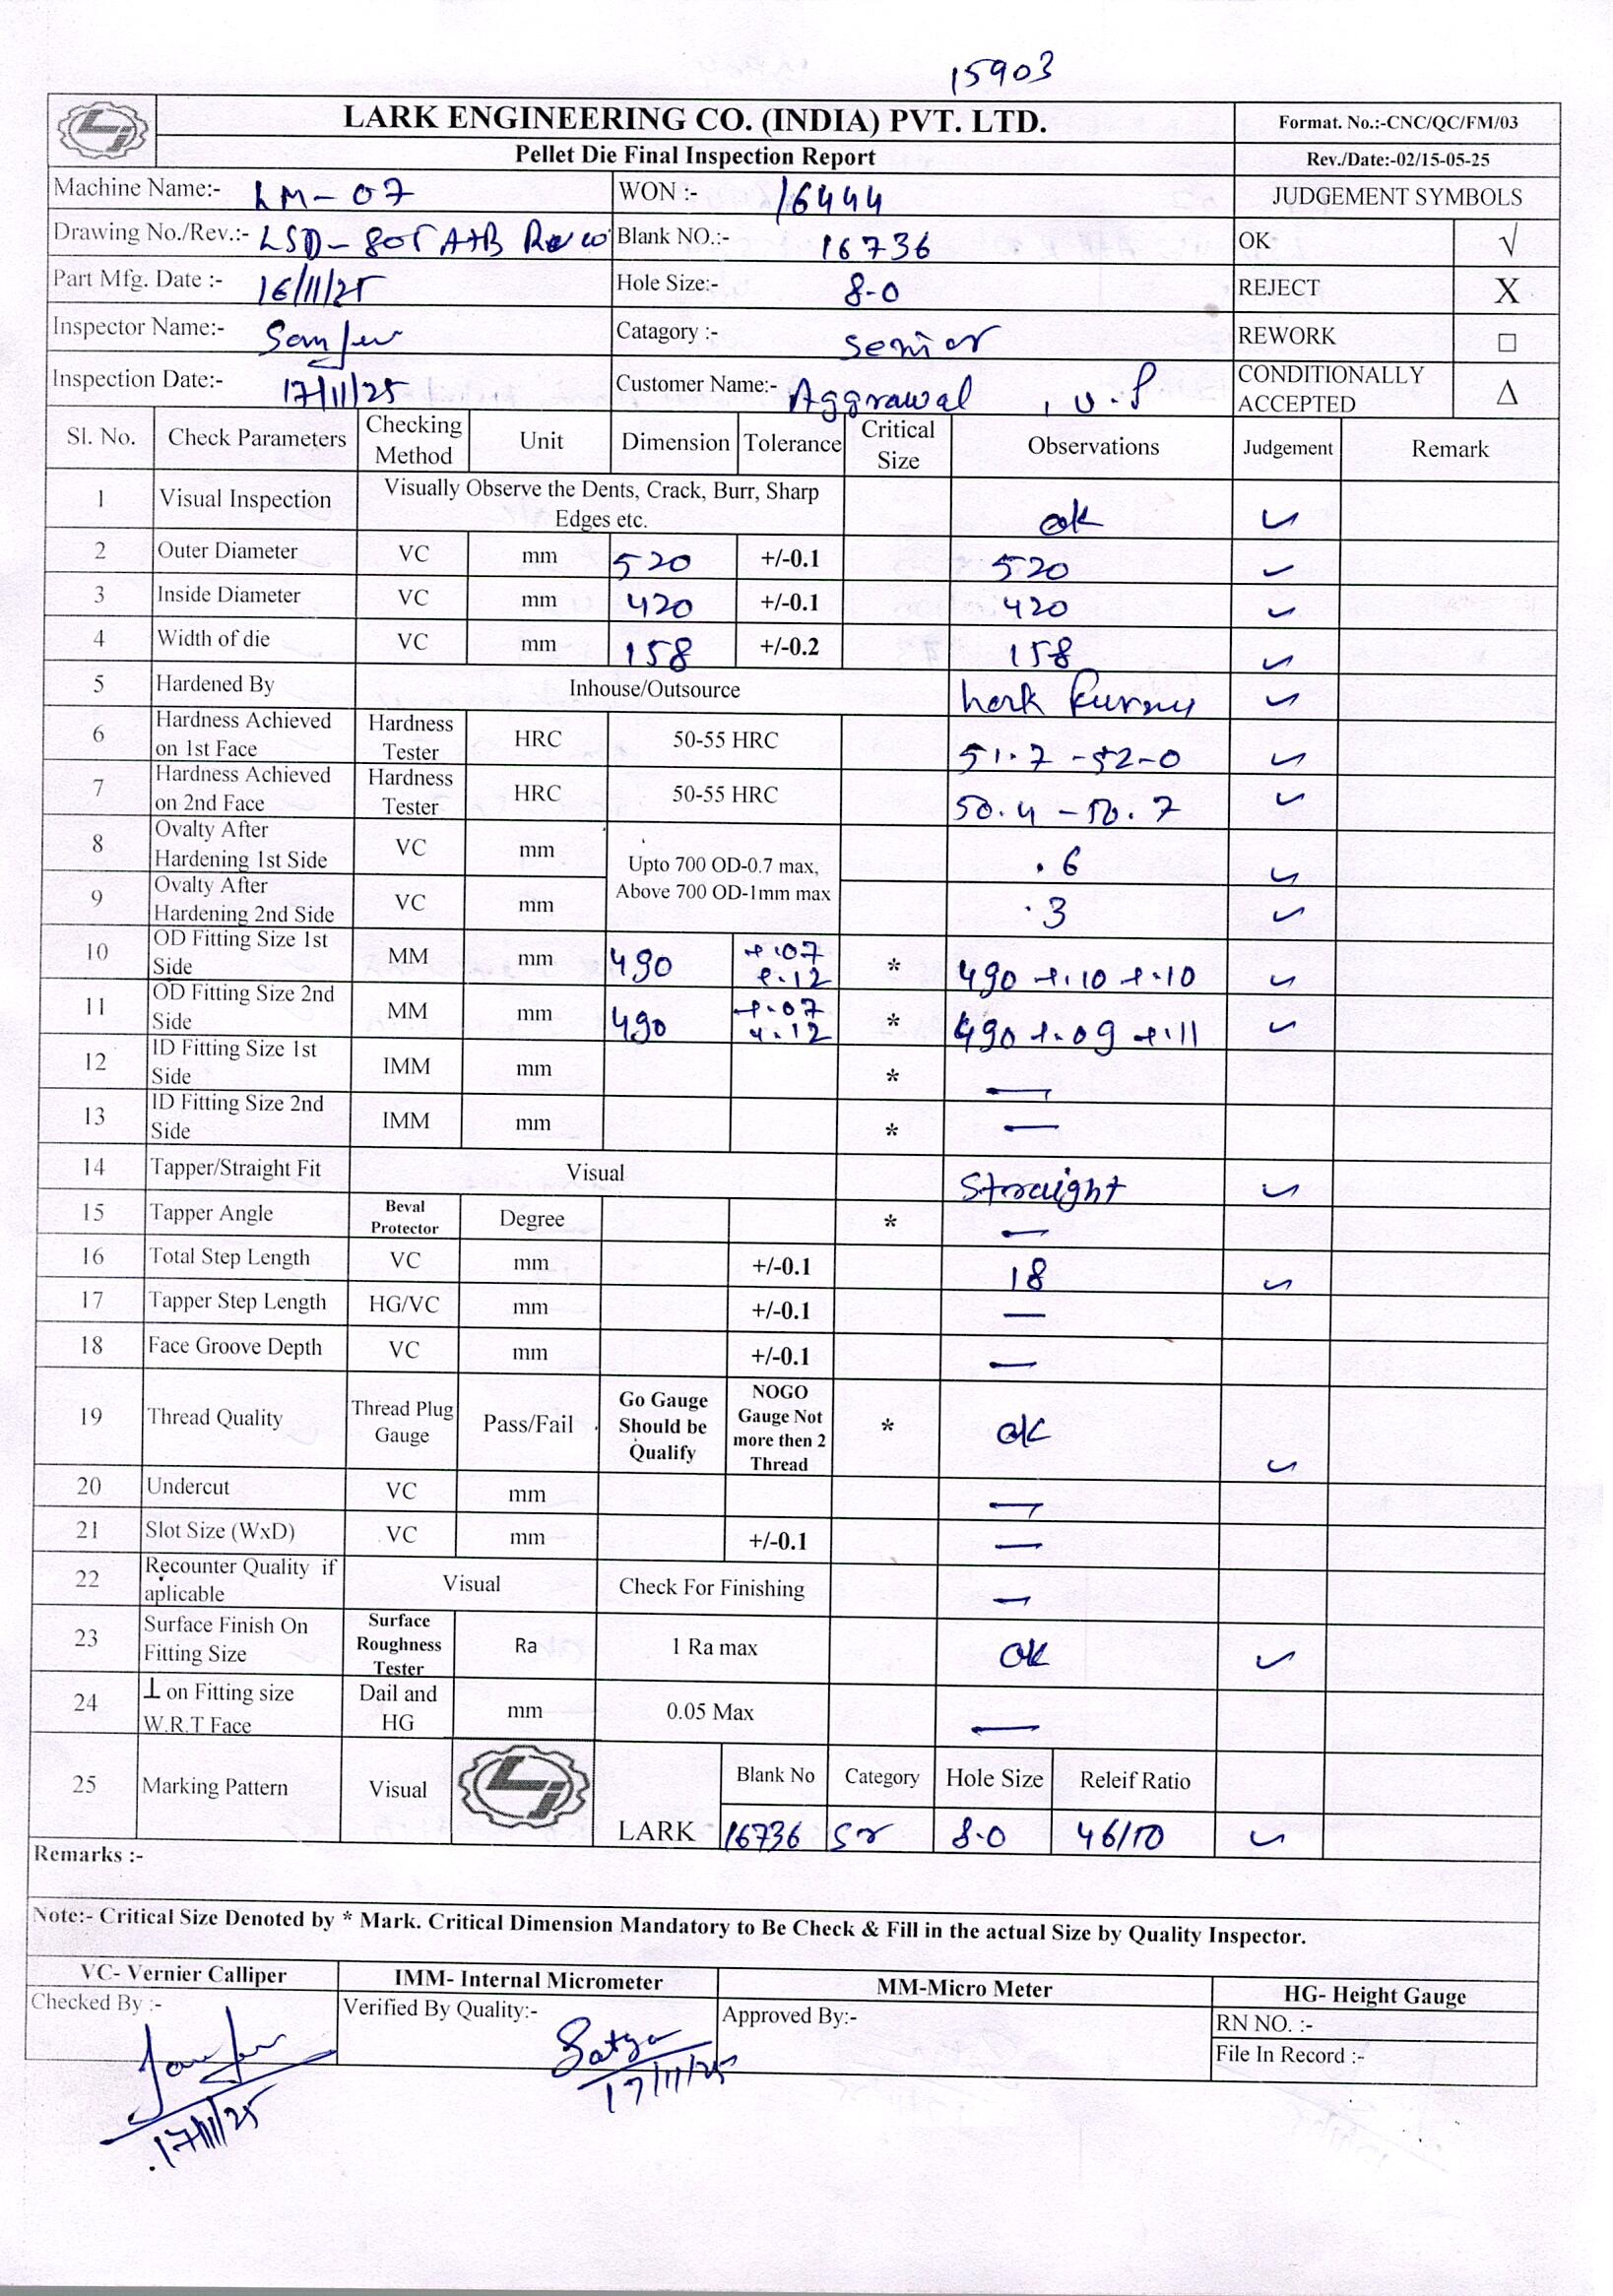 15903
LARK ENGINEERING CO. (INDIA) PVT. LTD.
Format. No.:-CNC/QC/FM/03
Pellet Die Final Inspection Report
Rev./Date:-02/15-05-25
Machine Name:- LM-07 WON :- 16444 JUDGEMENT SYMBOLS
Drawing No./Rev.:- LSD-805 A+B Rev Blank NO.:- 16736 OK √
Part Mfg. Date :- 16/11/25 Hole Size:- 8.0 REJECT X
Inspector Name:- Catagory :- Senior REWORK □
Inspection Date:- 17/11/25 Customer Name:- Aggrawal , U.P CONDITIONALLY ACCEPTED Δ
Sl. No. Check Parameters Checking Method Unit Dimension Tolerance Critical Size Observations Judgement Remark
1 Visual Inspection Visually Observe the Dents, Crack, Burr, Sharp Edges etc. ok ✓
2 Outer Diameter VC mm 520 +/-0.1 520 ✓
3 Inside Diameter VC mm 420 +/-0.1 420 ✓
4 Width of die VC mm 158 +/-0.2 158 ✓
5 Hardened By Inhouse/Outsource ✓
6 Hardness Achieved on 1st Face Hardness Tester HRC 50-55 HRC 51.7 -52-0 ✓
7 Hardness Achieved on 2nd Face Hardness Tester HRC 50-55 HRC 50.4 - 50.7 ✓
8 Ovalty After Hardening 1st Side VC mm Upto 700 OD-0.7 max, Above 700 OD-1mm max .6 ✓
9 Ovalty After Hardening 2nd Side VC mm .3 ✓
10 OD Fitting Size 1st Side MM mm 490 +.07 +.12 * 490 +.10 +.10 ✓
11 OD Fitting Size 2nd Side MM mm 490 +.07 +.12 * 490 +.09 +.11 ✓
12 ID Fitting Size 1st Side IMM mm * —
13 ID Fitting Size 2nd Side IMM mm * —
14 Tapper/Straight Fit Visual Straight ✓
15 Tapper Angle Beval Protector Degree * —
16 Total Step Length VC mm +/-0.1 18 ✓
17 Tapper Step Length HG/VC mm +/-0.1 —
18 Face Groove Depth VC mm +/-0.1 —
19 Thread Quality Thread Plug Gauge Pass/Fail Go Gauge Should be Qualify NOGO Gauge Not more then 2 Thread * ok ✓
20 Undercut VC mm —
21 Slot Size (WxD) VC mm +/-0.1 —
22 Recounter Quality if aplicable Visual Check For Finishing —
23 Surface Finish On Fitting Size Surface Roughness Tester Ra 1 Ra max OK ✓
24 ⊥ on Fitting size W.R.T Face Dail and HG mm 0.05 Max —
25 Marking Pattern Visual LARK Blank No Category Hole Size Releif Ratio
16736 Sr 8.0 46/10 ✓
Remarks :-
Note:- Critical Size Denoted by * Mark. Critical Dimension Mandatory to Be Check & Fill in the actual Size by Quality Inspector.
VC- Vernier Calliper IMM- Internal Micrometer MM-Micro Meter HG- Height Gauge
Checked By :- Verified By Quality:- Satya Approved By:- RN NO. :-
17/11/25 File In Record :-
17/11/25